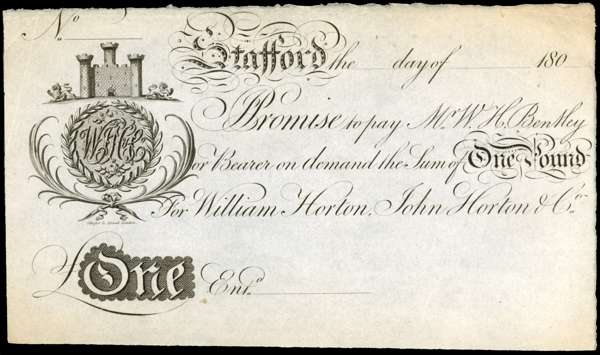 No.
Stafford the day of 180
I Promise to pay Mr. W. H. Bentley
or Bearer on demand the Sum of One Pound
For William Horton, John Horton & Co.
£ One Entd.